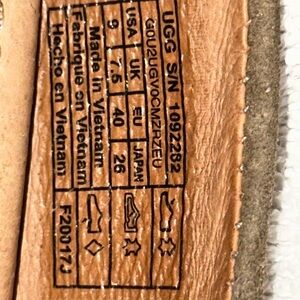 UGG S/N 1092282
USA UK EU JAPAN
9 7.5 40 26
Made in Vietnam
Fabriqué en Vietnam
Hecho en Vietnam
F20017J